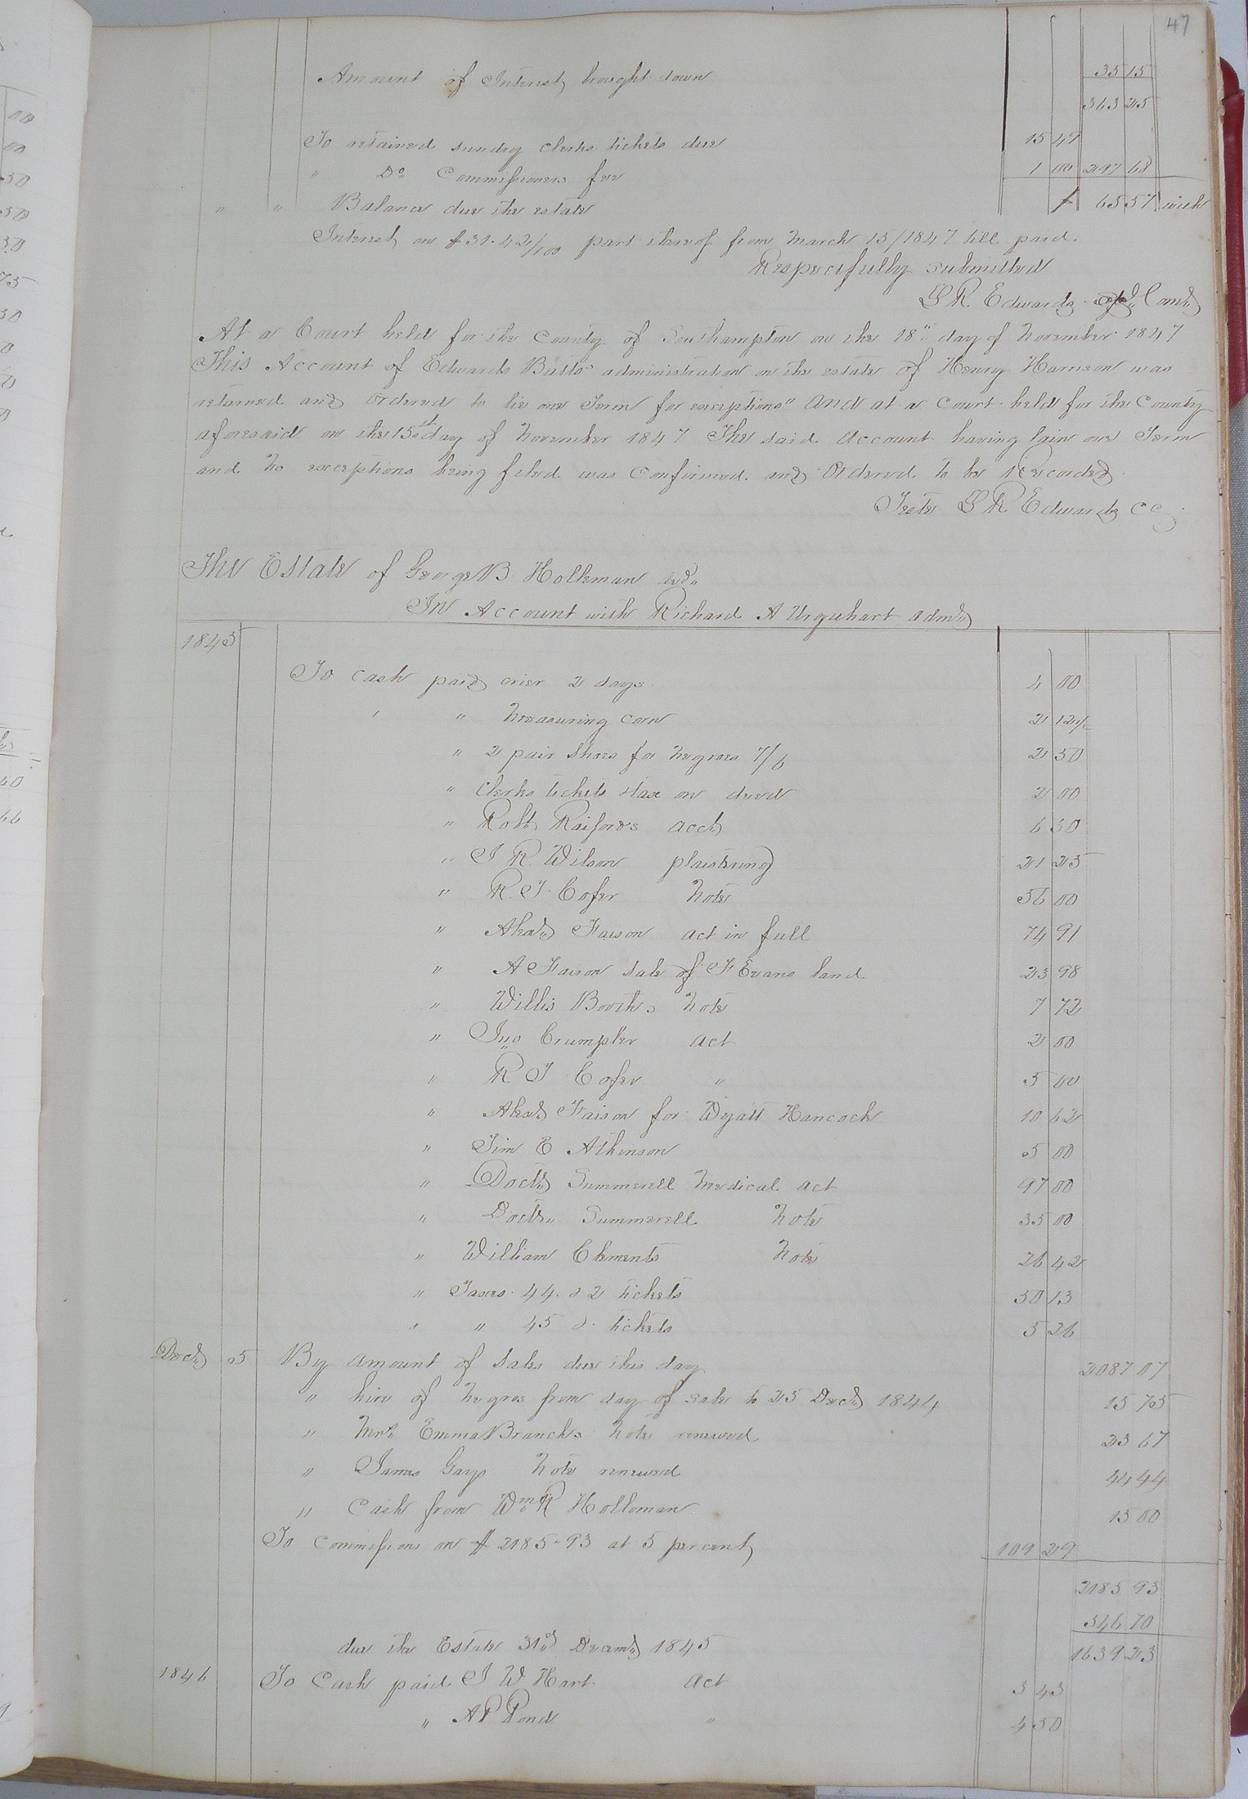 47
Amount of Interest brought down 35 15
363 25
To retained sundry clerks tickets due 15 49
" Do Commissioners fee 1 00 297 68
" " Balance due the estate $ 65 57 with
Interest on $31.42/100 part thereof from March 13/1847 till paid.
Respectfully submitted
L R Edwards Comr
At a Court held for the County of Southampton on the 18" day of November 1847
This Account of Edwards Butts administration on the estate of Henry Harrison was
returned and ordered to lie one Term for exceptions" And at a Court held for the County
aforesaid on the 15th day of November 1847 The said Account having lain one Term
and No exceptions being filed was Confirmed and Ordered to be Recorded
Teste L R Edwards CC
The Estate of George B Holleman decd
In Account with Richard A Urquhart admr
1845
To cash paid crier 2 days 4 00
" " Measuring corn 2 12½
" 2 pair shoes for negroes 7/6 2 50
" Clerks tickets & tax on deed 2 00
" Robt Raifords acct 6 50
" J R Wilson plaistering 21 25
" R. T. Cofer Note 56 00
" Alexd Faison act in full 74 91
" A Faison sale of F Evans land 23 98
" Willis Booths Note 7 72
" Jno Crumpler act 2 00
" R T Cofer " 5 00
" Alexd Faison for Wyatt Hancock 10 62
" Tim E Atkinson 5 00
" Doctr Summerell Medical act 97 00
" Doctr Summerell Note 35 00
" William Clements Note 26 42
" Taxes 44. & 2 tickets 50 13
" " 45 & tickets 5 26
Decr 25 By amount of sales due this day 2087 07
" hire of negroes from day of sale to 25 Decr 1844 15 75
" Mrs Emma Branchs Note renewed 23 67
" James Gays Note renewed 44 44
" Cash from Wm R Holleman 15 00
To Commissions on $2185.93 at 5 percent 109 29
2185 93
546 70
due the Estate 31st Decemr 1845 1639 23
1846 To Cash paid J W Hart Act 3 43
" A P Pond " 4 50